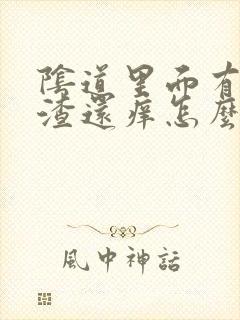 陰道里而有
渣還痒怎麼
風中神話